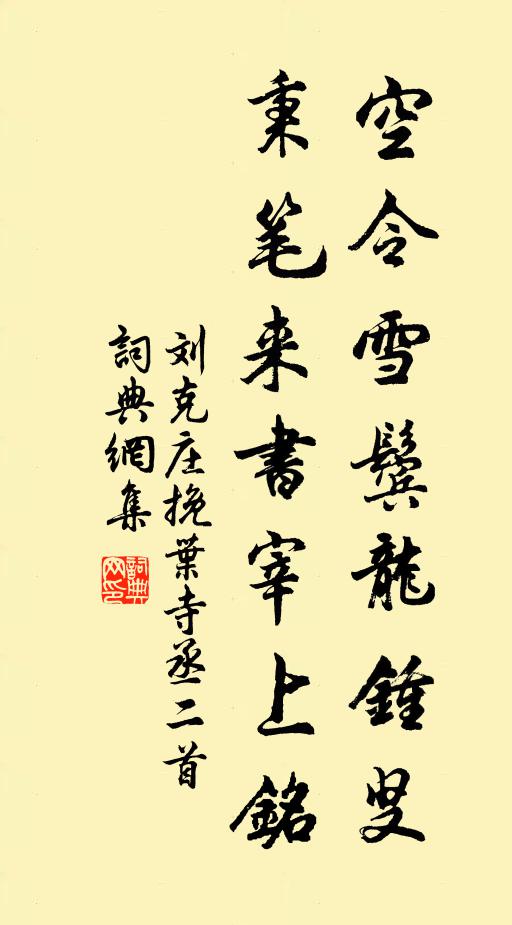 空令雪鬓龍鍾叟
秉笔来書宰上銘
刘克庄挽葉寺丞二首
詞典網集
詞典网印